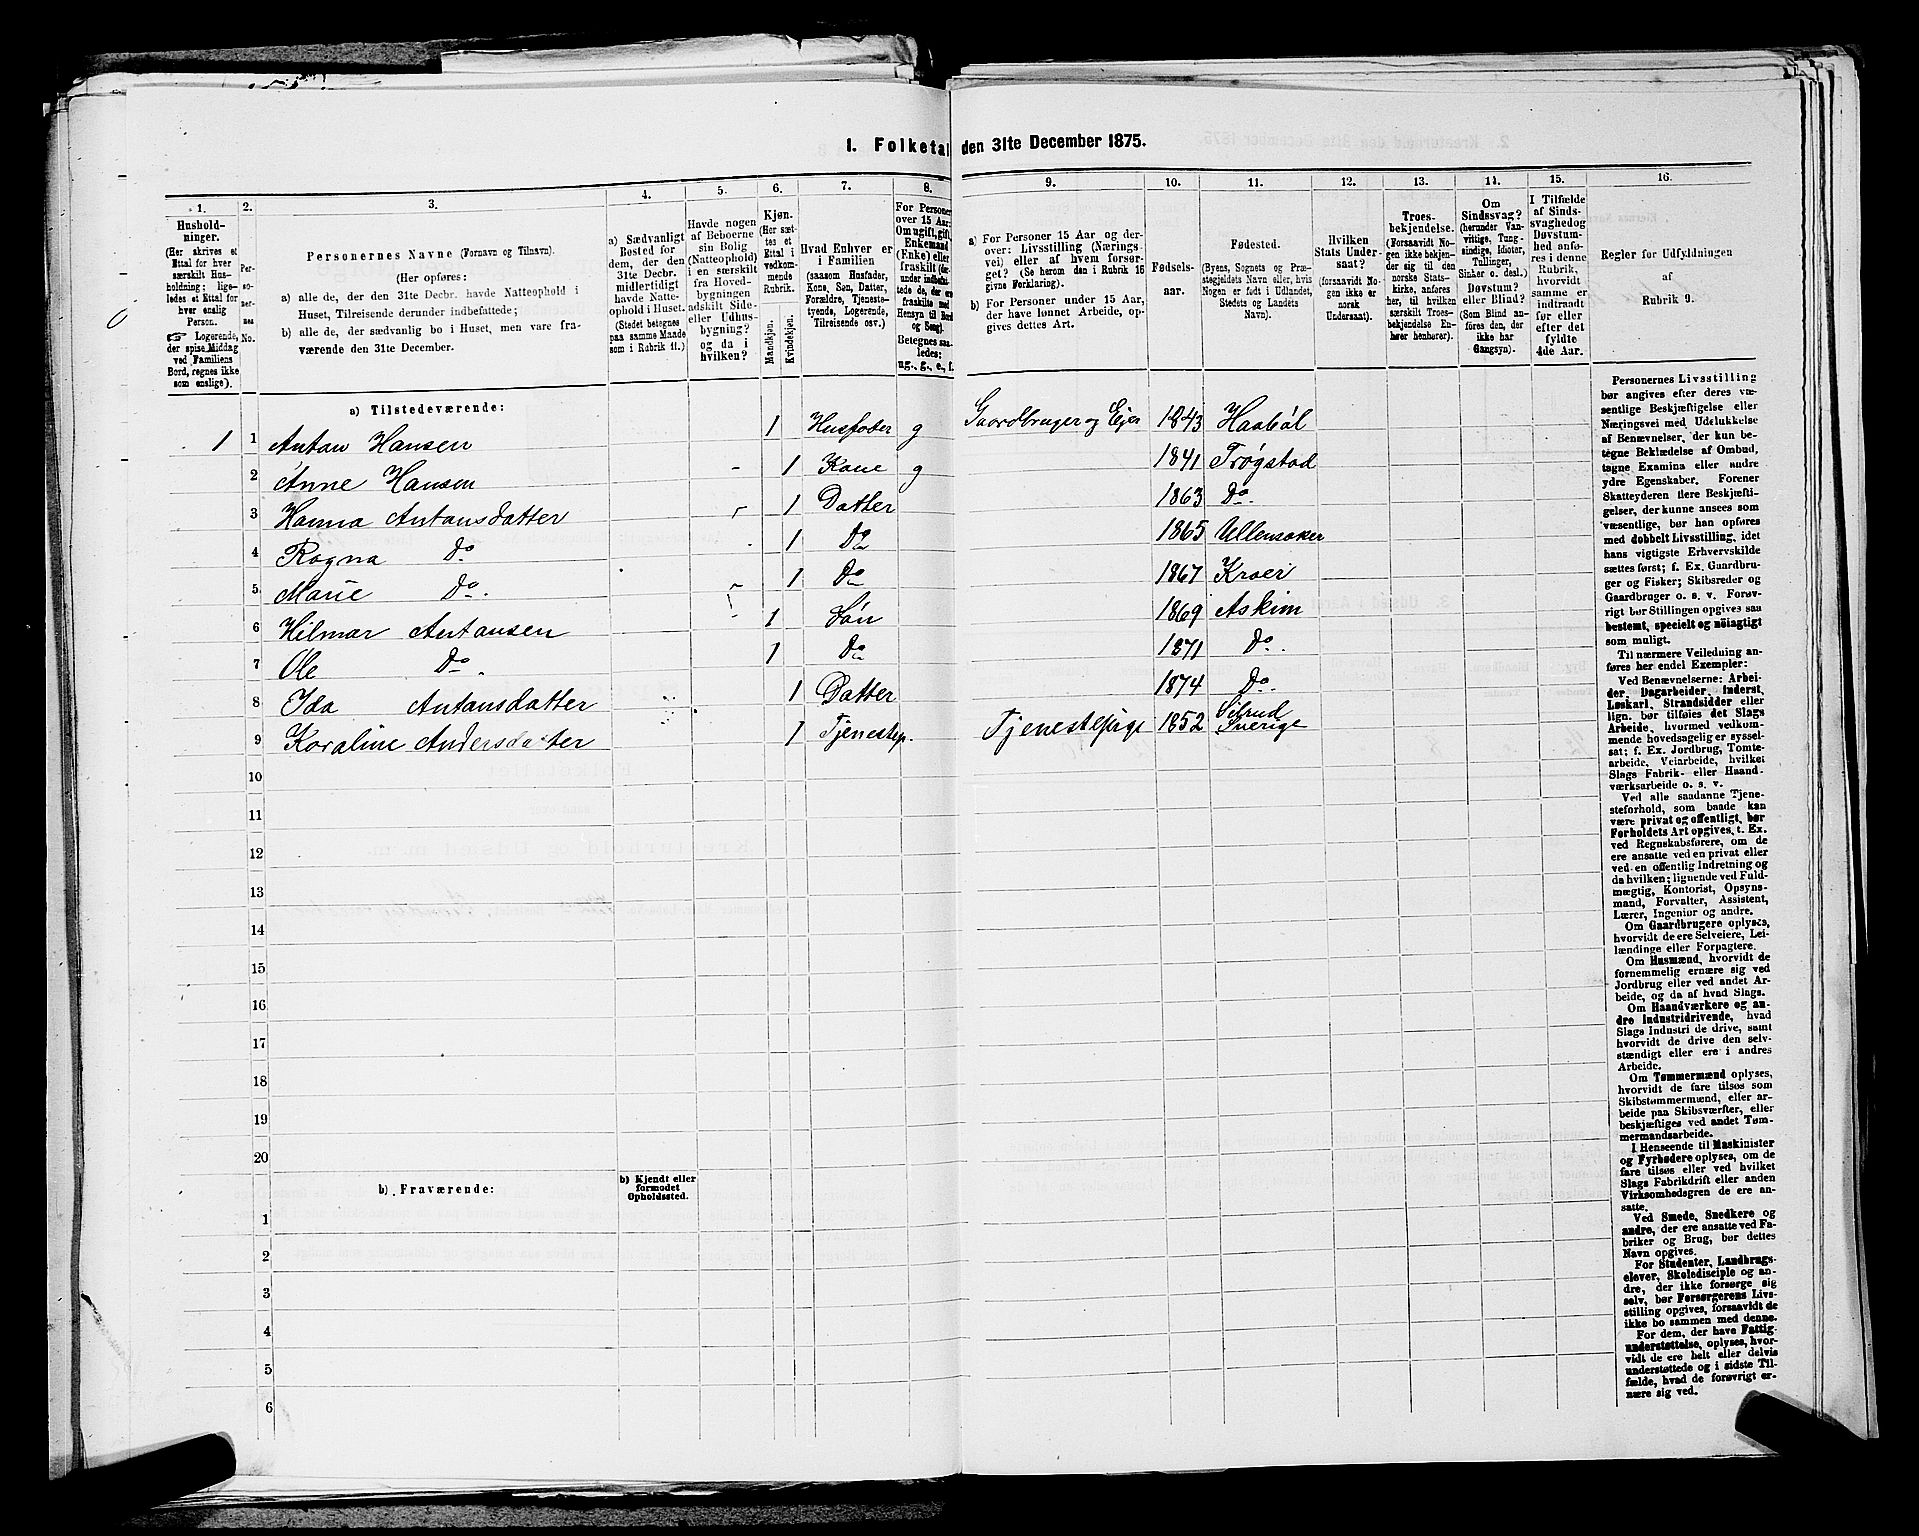 I. Folketal den 31te December 1875.
1. 2. 3. 4. 5. 6. 7. 8. 9. 10. 11. 12. 13. 14. 15. 16.
Husholdninger.
(Her skrives et
Ettal for hver
særskilt Husholdning;
ligeledes et Ettal for
hver enslig
Person.
Logerende,
der spise Middag
ved Familiens
Bord, regnes ikke
som enslige).
Personernes No.
Personernes Navne (Fornavn og Tilnavn).
(Her opføres:
a) alle de, der den 31te Decbr. havde Natteophold i
Huset, Tilreisende derunder indbefattede;
b) alle de, der sædvanlig bo i Huset, men vare fraværende den 31te December.
a) Sædvanligt
Bosted for
dem, der den
31te Decbr.
midlertidigt
havde Natteophold i Huset.
(Stedet betegnes
paa samme Maade
som i Rubrik 11.)
Havde nogen
af Beboerne
sin Bolig
(Natteophold)
i en særskilt
fra Hovedbygningen
adskilt Side-
eller Udhusbygning?
og da i
hvilken?
Kjøn.
(Her sættes et
Ettal i
vedkommende
Rubrik.
Mandkjøn.
Kvindekjøn.
Hvad Enhver er
i Familien
(saasom Husfader,
Kone, Søn, Datter,
Forældre, Tjenestetyende, Logerende,
Tilreisende osv.)
For Personer
over 15 Aar:
Om ugift, gift,
Enkemand
(Enke) eller
fraskilt
Hensyn til Bord
og Seng).
Betegnes saaledes:
ug., g., e., f.
a) For Personer 15 Aar og derover: Livsstilling (Næringsvei) eller af hvem forsørget? (Se herom den i Rubrik 16
givne Forklaring).
b) For Personer under 15 Aar,
der have lønnet Arbeide, opgives dettes Art.
Fødselsaar.
Fødested.
(Byens, Sognets og Præstegjeldets Navn eller, hvis
Nogen er født i Udlandet,
Stedets og Landets
Navn).
Hvilken
Stats Undersaat?
(forsaavidt Nogen ikke er
norsk
Undersaat).
Troesbekjendelse.
(Forsaavidt Nogen ikke bekjender sig til den
norske Statskirke, anføres
her, til hvilken
særskilt Troesbekjendelse Enhver henhører).
Om
Sindssvag?
(herunder Vanvittige, Tungsindige, Idioter,
Tullinger,
Sinker o. desl.)
Døvstum?
eller Blind?
(Som Blind anføres den, der
ikke har
Gangsyn).
I Tilfælde
af Sindssvaghed og
Døvstumhed anføres i denne
Rubrik,
hvorvidt
samme er
indtraadt
før eller
efter det
fyldte
4de Aar.
Regler for Udfyldningen
af
Rubrik 9.
a) Tilstedeværende:
1 1 Antan Hansen 1 Husfader g Gaardbruger og Ejer 1843 Haabøl
2 Anne Hansen 1 Kone g 1841 Trøgstad
3 Hanna Antansdatter 1 Datter 1863 Do.
4 Ragna Do. 1 Do 1865 Ullensaker
5 Marie Do. 1 Do 1867 Kroer
6 Hilmar Antansen 1 Søn 1869 Askim
7 Ole Do. 1 Do 1871 Do.
8 Ida Antansdatter 1 Datter 1874 Do.
9 Karaline Andersdatter 1 Tjenestep. Tjenestepige 1852 Sverige
10
11
12
13
14
15
16
17
18
19
20
b) Fraværende:
b) Kjendt eller
formodet
Opholdssted.
1
2
3
4
5
6
Personernes Livsstilling
bør angives efter deres væsentlige Beskjæftigelse eller
Næringsvei med Udelukkelse
af Benævnelser, der kun betegne Beklædelse af Ombud,
tagne Examina eller andre
ydre Egenskaber. Forener
Skatteyderen flere Beskjæftigelser, der kunne ansees som
væsentlige, bør han opføres
med dobbelt Livsstilling, idet
hans vigtigste Erhvervskilde
sættes først; f. Ex. Gaardbruger og Fisker; Skibsreder og
Gaardbruger o. s. v. Forøvrigt bør Stillingen opgives saa
bestemt, specielt og nöiagtigt
som muligt.
Til nærmere Veiledning anføres her endel Exempler:
Ved Benævnelserne: Arbeider, Dagarbeider, Inderst,
Løskarl, Strandsidder eller
lign. bør tilføies det Slags
Arbeide, hvormed vedkommende hovedsagelig er sysselsat; f. Ex. Jordbrug, Tomtearbeide, Veiarbeide, hvilket
Slags Fabrik- eller Haandværksarbeide o. s. v.
Ved alle saadanne Tjenesteforhold, som baade kan
være privat og offentligt, bør
Forholdets Art opgives, t. Ex.
ved Regnskabsførere, om de
ere ansatte ved en privat eller
ved en offentlig Indretning og
da hvilken; lignende ved Fuldmægtig, Kontorist, Opsynsmand, Forvalter, Assistent,
Lærer, Ingeniør og andre.
Om Gaardbrugere oplyses,
hvorvidt de ere Selveiere, Leilændinge eller Forpagtere.
Om Husmænd, hvorvidt de
fornemmelig ernære sig ved
Jordbrug eller ved andet Arbeide, og da af hvad Slags.
Om Haandværkere og andre Industridrivende, hvad
Slags Industri de drive, samt
hvorvidt de drive den selvstændigt eller ere i andres
Arbeide.
Om Tømmermænd oplyses,
hvorvidt de fare tilsøs som
Skibstømmermænd, eller arbeide paa Skibsværfter, eller
beskjæftiges ved andet Tømmermandsarbeide.
I Henseende til Maskinister
og Fyrbødere oplyses, om de
fare tilsøs eller ved hvilket
Slags Fabrikdrift eller anden
Virksomhedsgren de ere ansatte.
Ved Smede, Snedkere og
andre, der ere ansatte ved Fabriker og Brug, bør dettes
Navn opgives.
For Studenter, Landbrugselever, Skoledisciple og andre, der ikke forsørge sig
selv, bør Forsørgerens Livsstilling opgives, forsaavidt de
ikke bo sammen med denne.
For dem, der have Fattigunderstøttelse, oplyses, hvorvidt de ere helt eller delvis
understøttede og i sidste Tilfælde, hvad de forøvrigt ernære sig ved.